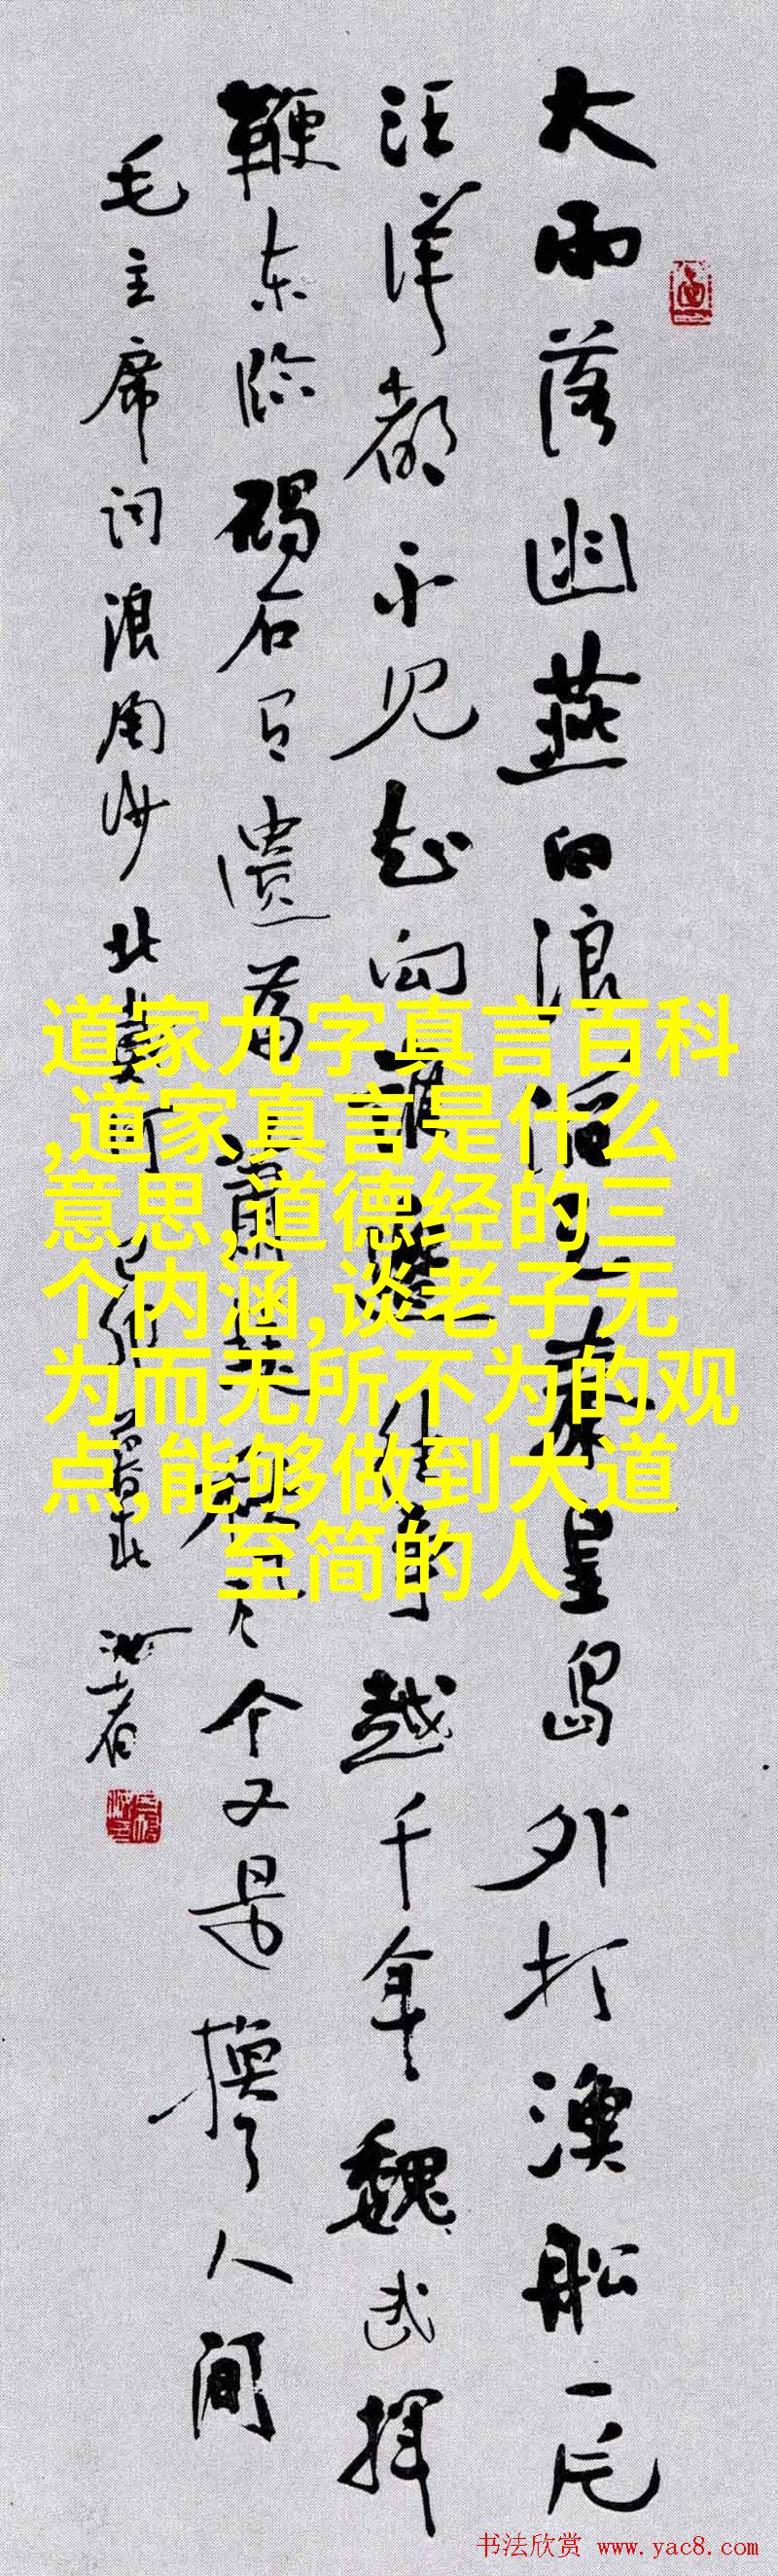 大雨落幽燕白浪滔天秦皇岛外打漁船一片
汪洋都不见知向誰邊往事越千年魏武揮
鞭东临碣石有遗篇萧瑟秋风今又是换了人间
毛主席词浪淘沙北戴河
道家九字真言百科
,道家真言是什么
意思,道德经的三
个内涵,谈老子无
为而无所不为的观
点,能够做到大道
至简的人
书法欣赏 www.yac8.com